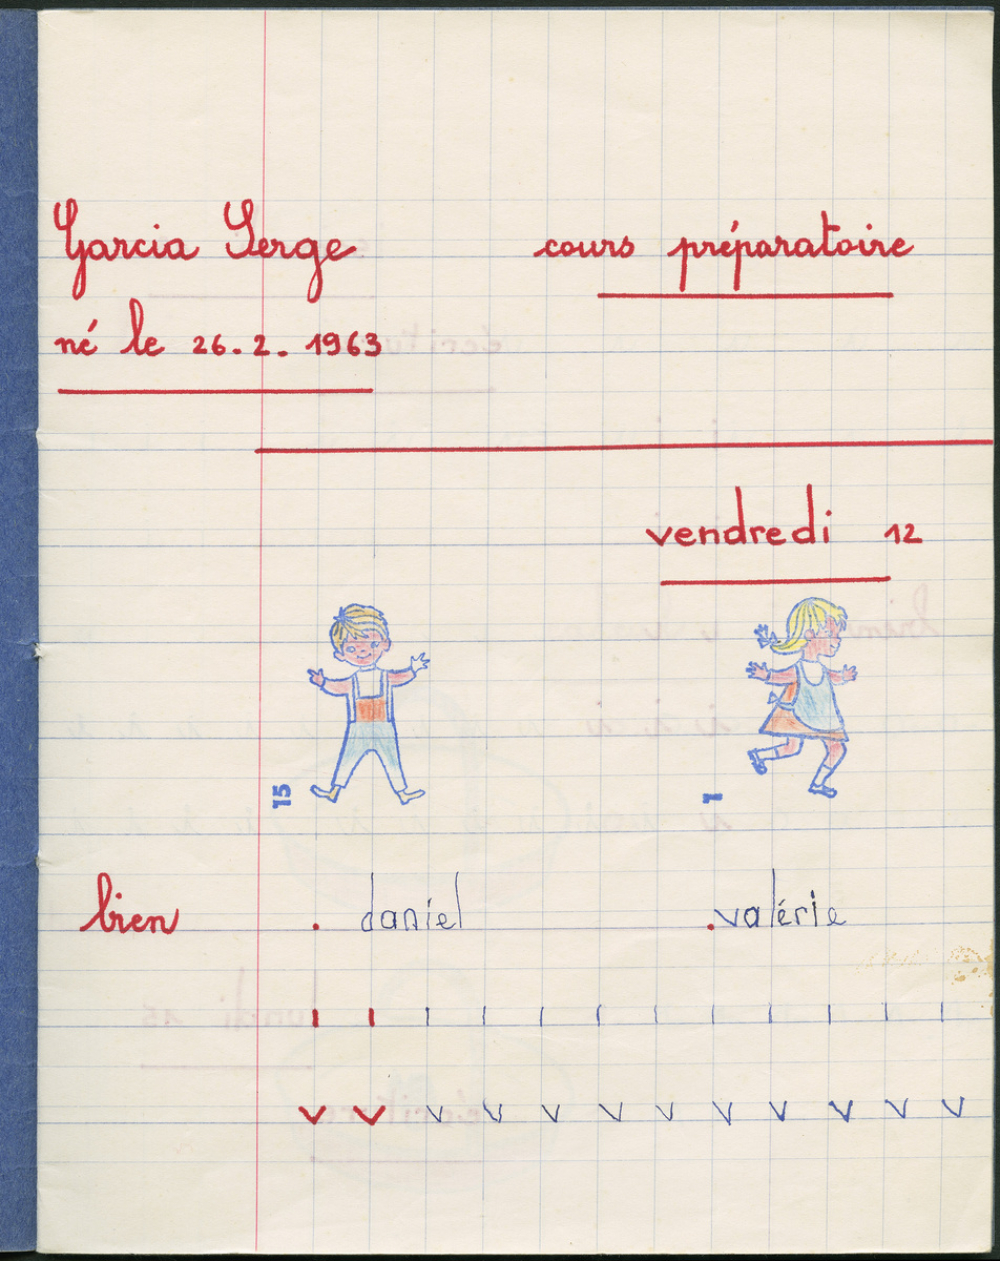 Garcia Serge cours préparatoire
né le 26.2.1963
vendredi 12
15 1
bien . daniel . valérie
ı ı ı ı ı ı ı ı ı ı ı ı
v v v v v v v v v v v v